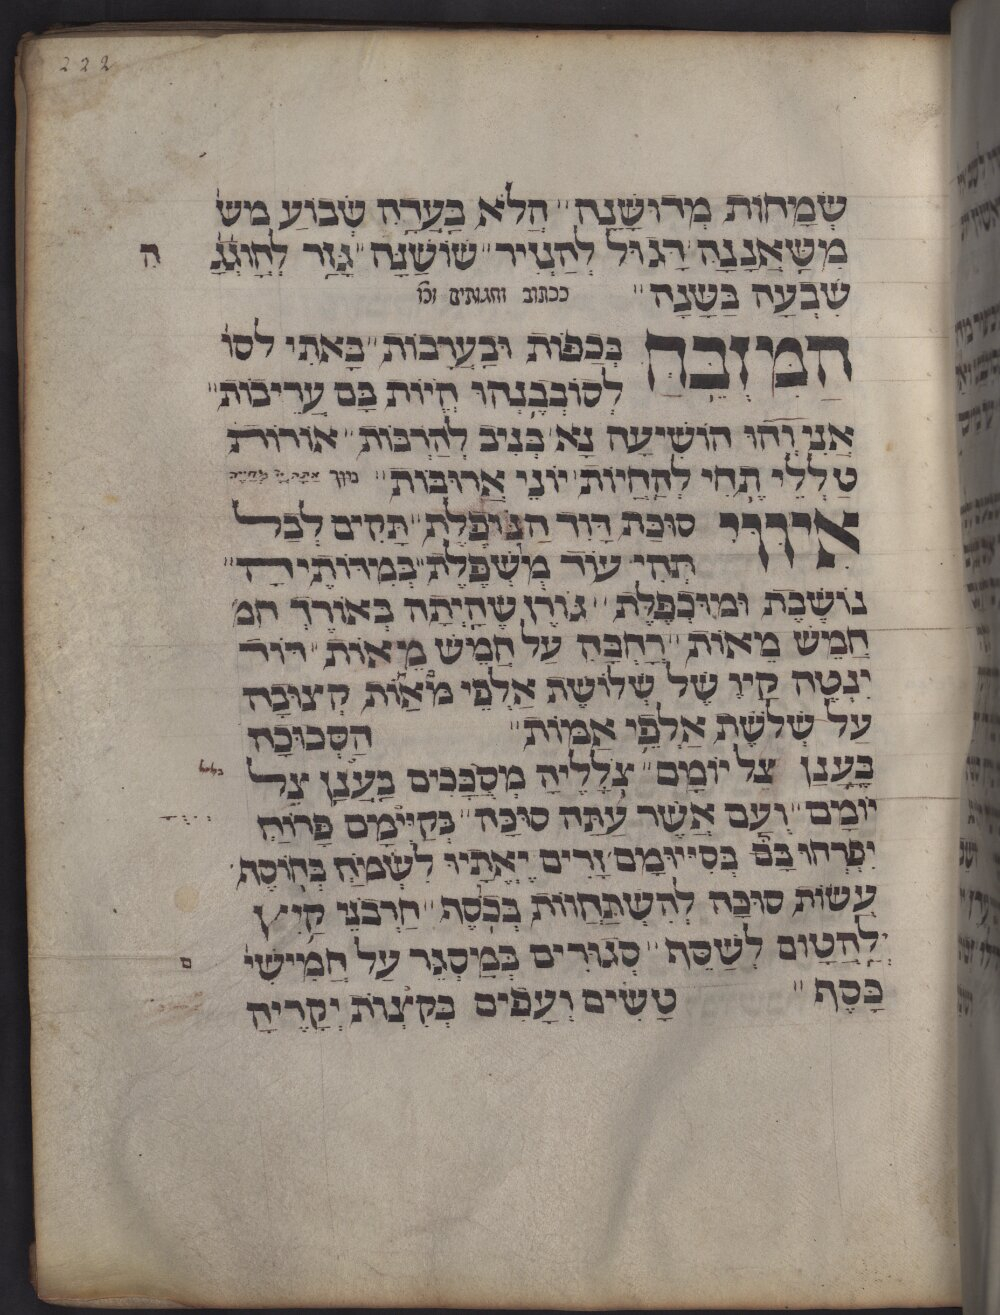 222
שְׂמָחוֹת מְדוּשָׁנָה הֲלֹא בָעֲרָה שְׂבוֹעַ מש
מִשַּׁאֲנַנָּה רָגוּל לְהַצְיִר שׁוֹשַׁנָּה גָּזַר לְחוֹגְגָּ ה
שִׁבְעָה בַּשָּׁנָה ככתוב וחגותים וכו
הַמִזְבֵּחַ בְּכַפּוֹת וּבַעֲרָבוֹת בָּאתִי לסו
לְסוֹבְבֶנְהוּ הֱיוֹת בָּם עֲרֵיבוֹת
אֲנִי וְהוּ הוֹשִׁיעָה נָא בְּנִיב לְהַרְבּוֹת אורות
טַלְלֵי תְחִי לְהַחֲיוֹת יוֹנֵי אֲרוּבוֹת
סוּכַּת דָּוִד הַנּוֹפֶלֶת תָּקִים לְכַל
תְּהִי עוֹד מְשְׁפֶּלֶת בְּמִדּוֹתֶיהָ
נוֹשֶׁבֶת וּמוּכְפֶּלֶת גּוֹרֶן שֶׁהָיְתָה בְּאוֹרֶךְ חמ
חֲמֵשׁ מֵאוֹת רָחְבָּהּ עַל חֲמֵשׁ מֵאוֹת דּוֹד
יִנְטֶה קָיו שֶׁל שְׁלוֹשֶׁת אַלְפֵי מֵאוֹת קְצוּבָה
עַל שְׁלֹשֶׁת אַלְפֵי אַמּוֹת הַסְּכוּכָה
בֶּעָנָן צֵל יוֹמָם צְלָלֶיהָ מְסֻבָּכִים בֶּעָנָן צֵל
יוֹמָם וְעַם אֲשֶׁר עַתָּה סוּכָּה בְּקִיּוּמָם פָּרוֹחַ
יִפְרְחוּ בָם בְּסִיּוּמָם זָרִים יֶאֱתָיוּ לִשְׂמוֹחַ בְּחוֹסֶף
עֲשׂוֹת סוּכָּה לְהִשְׁתַּחֲווֹת בְּכֶסֶף חַרְבֹנֵי קַיִץ
לַהֲטוֹם לְשַׁסֵּף סְגוּרִים בְּמַסְגֵּר עַל חֲמִישִׁי
כָּסֶף טָשִׂים וְעָפִים בְּקִצְווֹת יְקָרֶיהָ